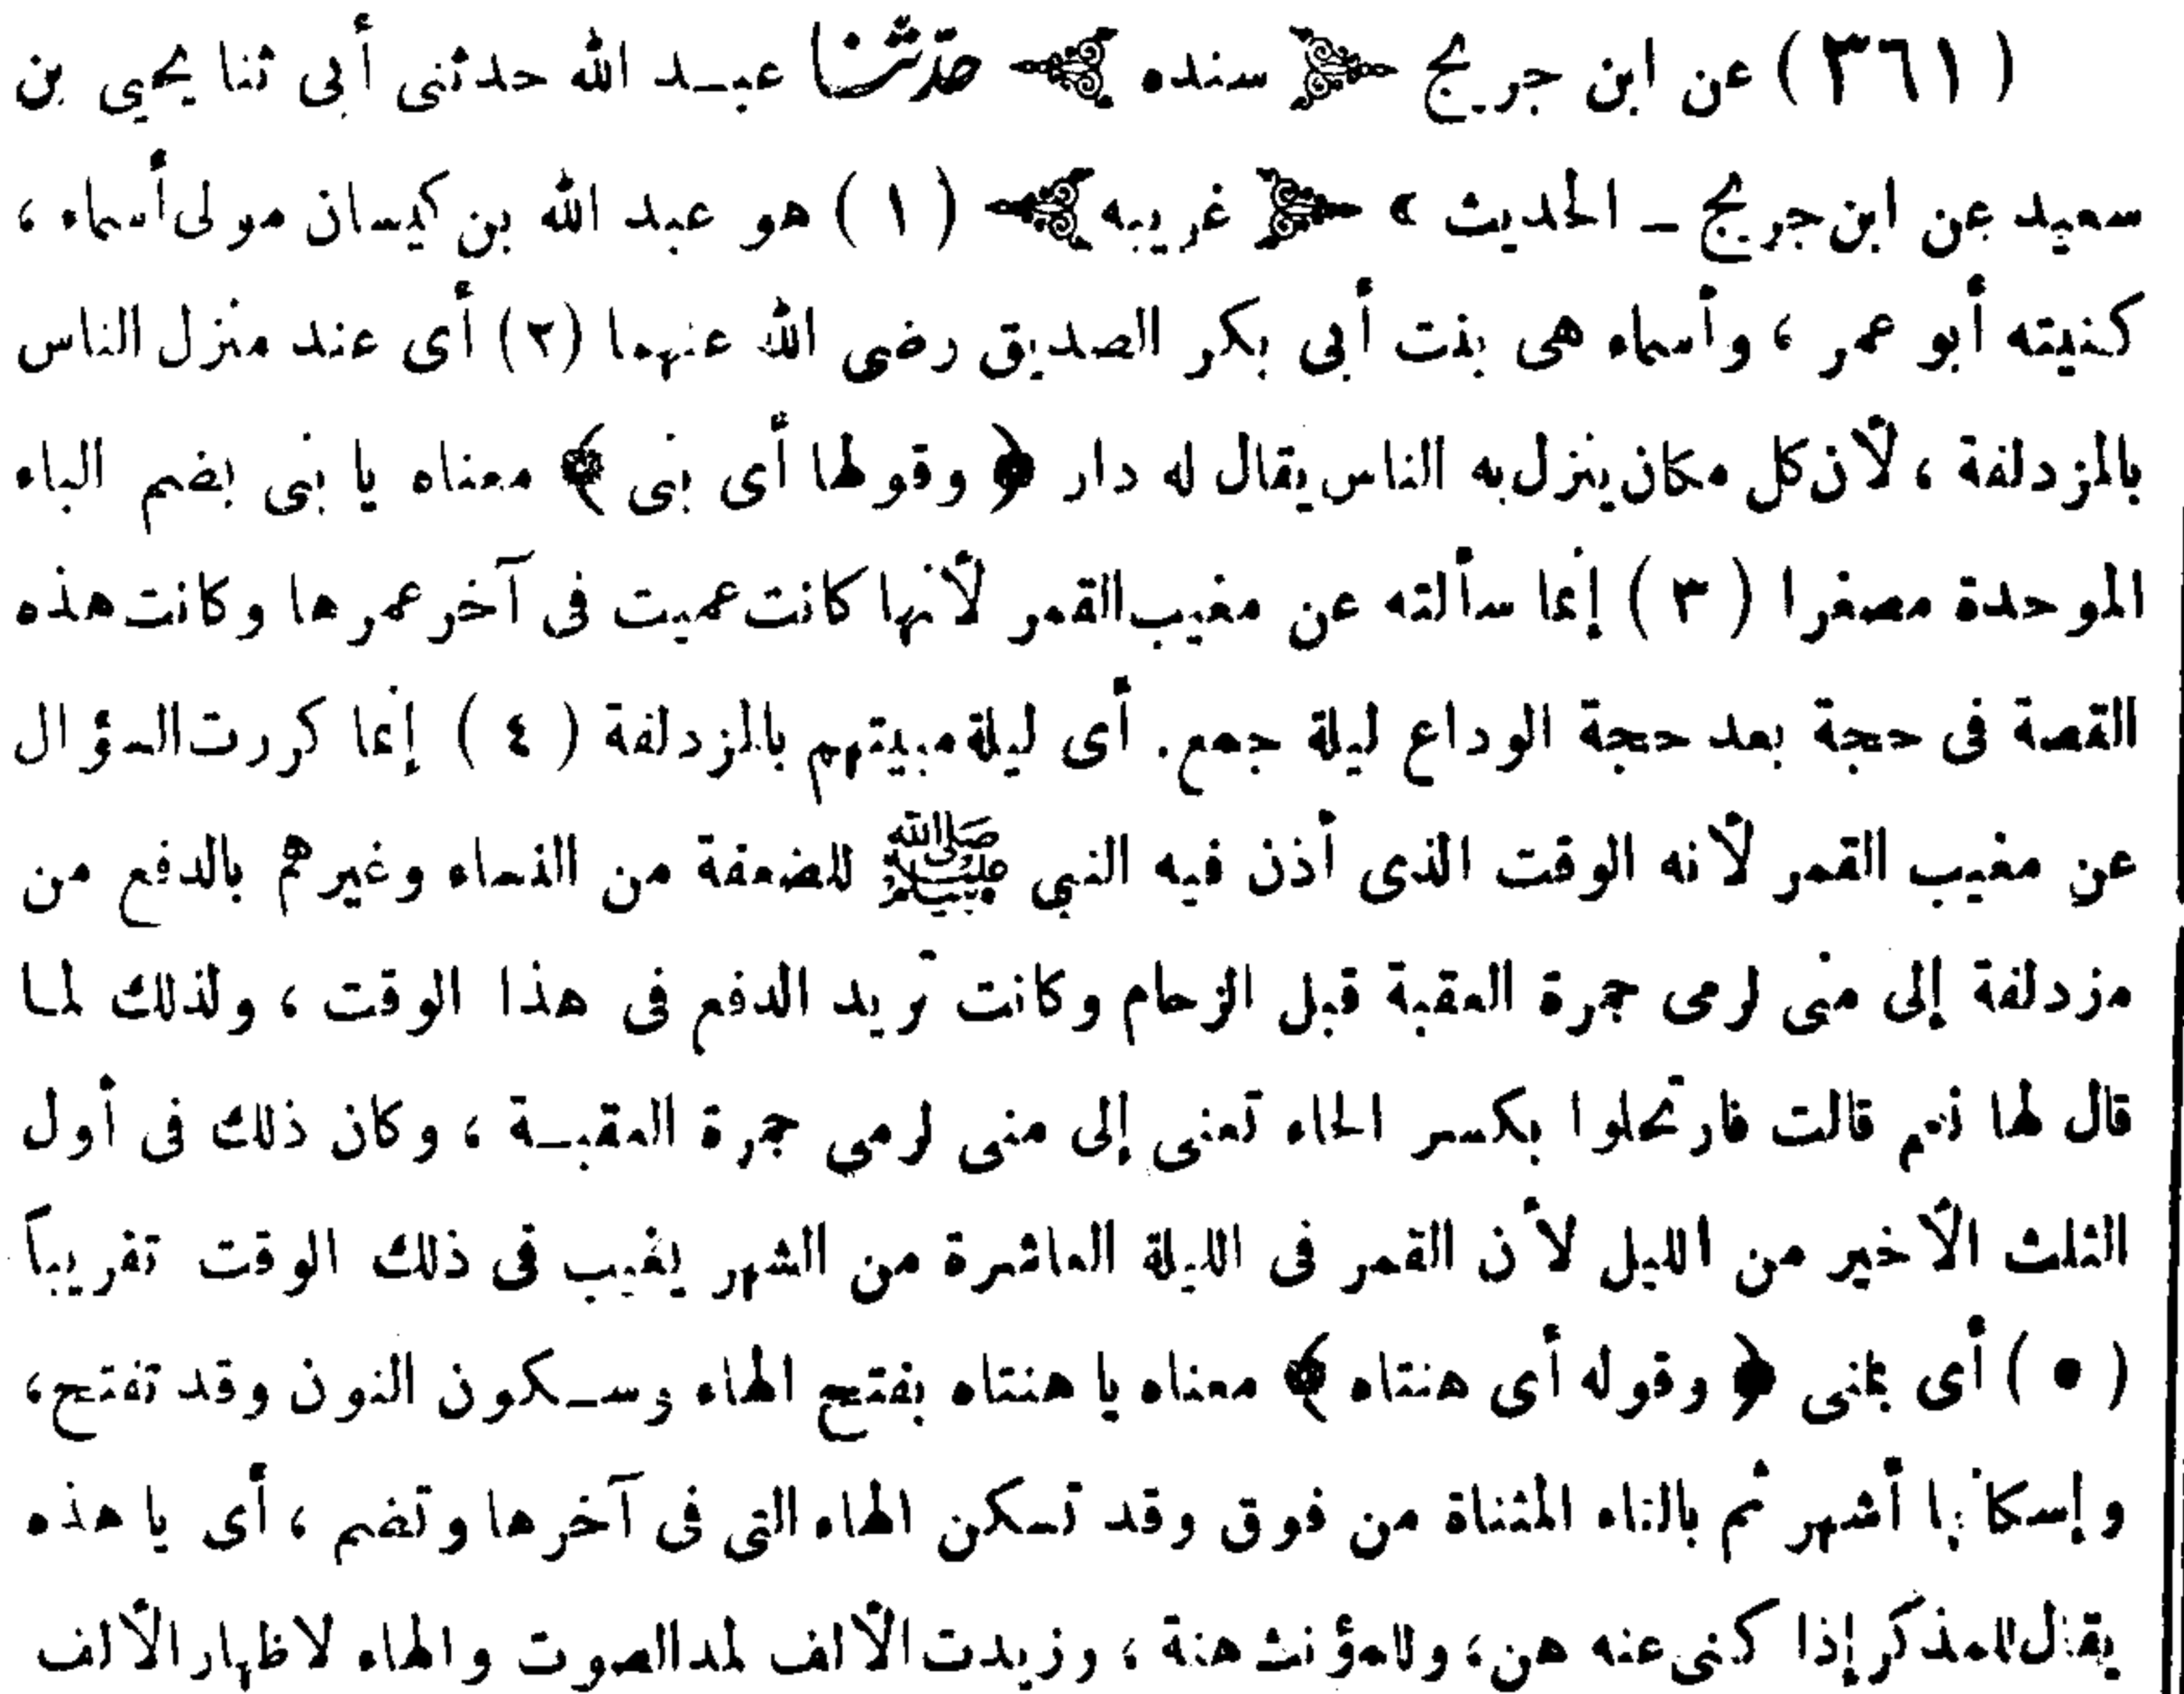 (٣٦١) عن ابن جريج ﴿ سنده ﴾ حدّثنا عبد الله حدثنى أبى ثنا يحيي بن
سعيد عن ابن جريج ــ الحديث » ﴿ غريبه ﴾ (١) هو عبد الله بن كيسان مولى أسماء ،
كنيته أبو عمر ، وأسماء هى بنت أبى بكر الصديق رضى الله عنهما (٢) أى عند منزل الناس
بالمزدلفة ، لأن كل مكان ينزل به الناس يقال له دار ﴿ وقولها أى بنى ﴾ معناه يا بنى بضم الباء
الموحدة مصغرا (٣) إنما سألته عن مغيب القمر لأنها كانت عميت فى آخر عمرها وكانت هذه
القصة فى حجة بعد حجة الوداع ليلة جمع. أى ليلة مبيتهم بالمزدلفة (٤) إنما كررت السؤال
عن مغيب القمر لأنه الوقت الذى أذن فيه النبي ﷺ للضعفة من النساء وغيرهم بالدفع من
مزدلفة إلى منى لرمى جمرة العقبة قبل الزحام وكانت تريد الدفع فى هذا الوقت ، ولذلك لما
قال لها نعم قالت فارتحلوا بكسر الحاء تعنى إلى منى لرمي جمرة العقبة ، وكان ذلك فى أول
الثلث الأخير من الليل لأن القمر فى الليلة العاشرة من الشهر يغيب فى ذلك الوقت تقريباً
(٥) أى بمنى ﴿ وقوله أى هنتاه ﴾ معناه يا هنتاه بفتح الهاء وسكون النون وقد تفتح،
وإسكانها أشهر ثم بالتاء المثناة من فوق وقد تسكن الهاء التى فى آخرها وتضم ، أى يا هذه
يقال للمذكر إذا كنى عنه هن، وللمؤنث هنة ، وزيدت الألف لمد الصوت والهاء لاظهار الألف